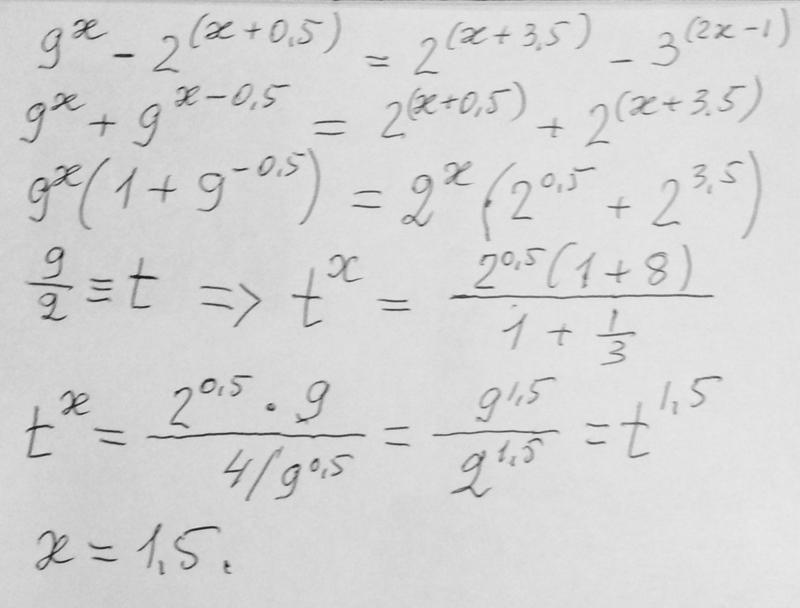 9^x - 2^(x+0,5) = 2^(x+3,5) - 3^(2x-1)
9^x + 9^x-0,5 = 2^(x+0,5) + 2^(x+3.5)
9^x(1 + 9^-0,5) = 2^x(2^0,5 + 2^3,5)
9/2 ≡ t => t^x = 2^0,5(1+8) / 1 + 1/3
t^x = 2^0,5 · 9 / 4/9^0,5 = 9^1,5 / 2^1,5 = t^1,5
x = 1,5.